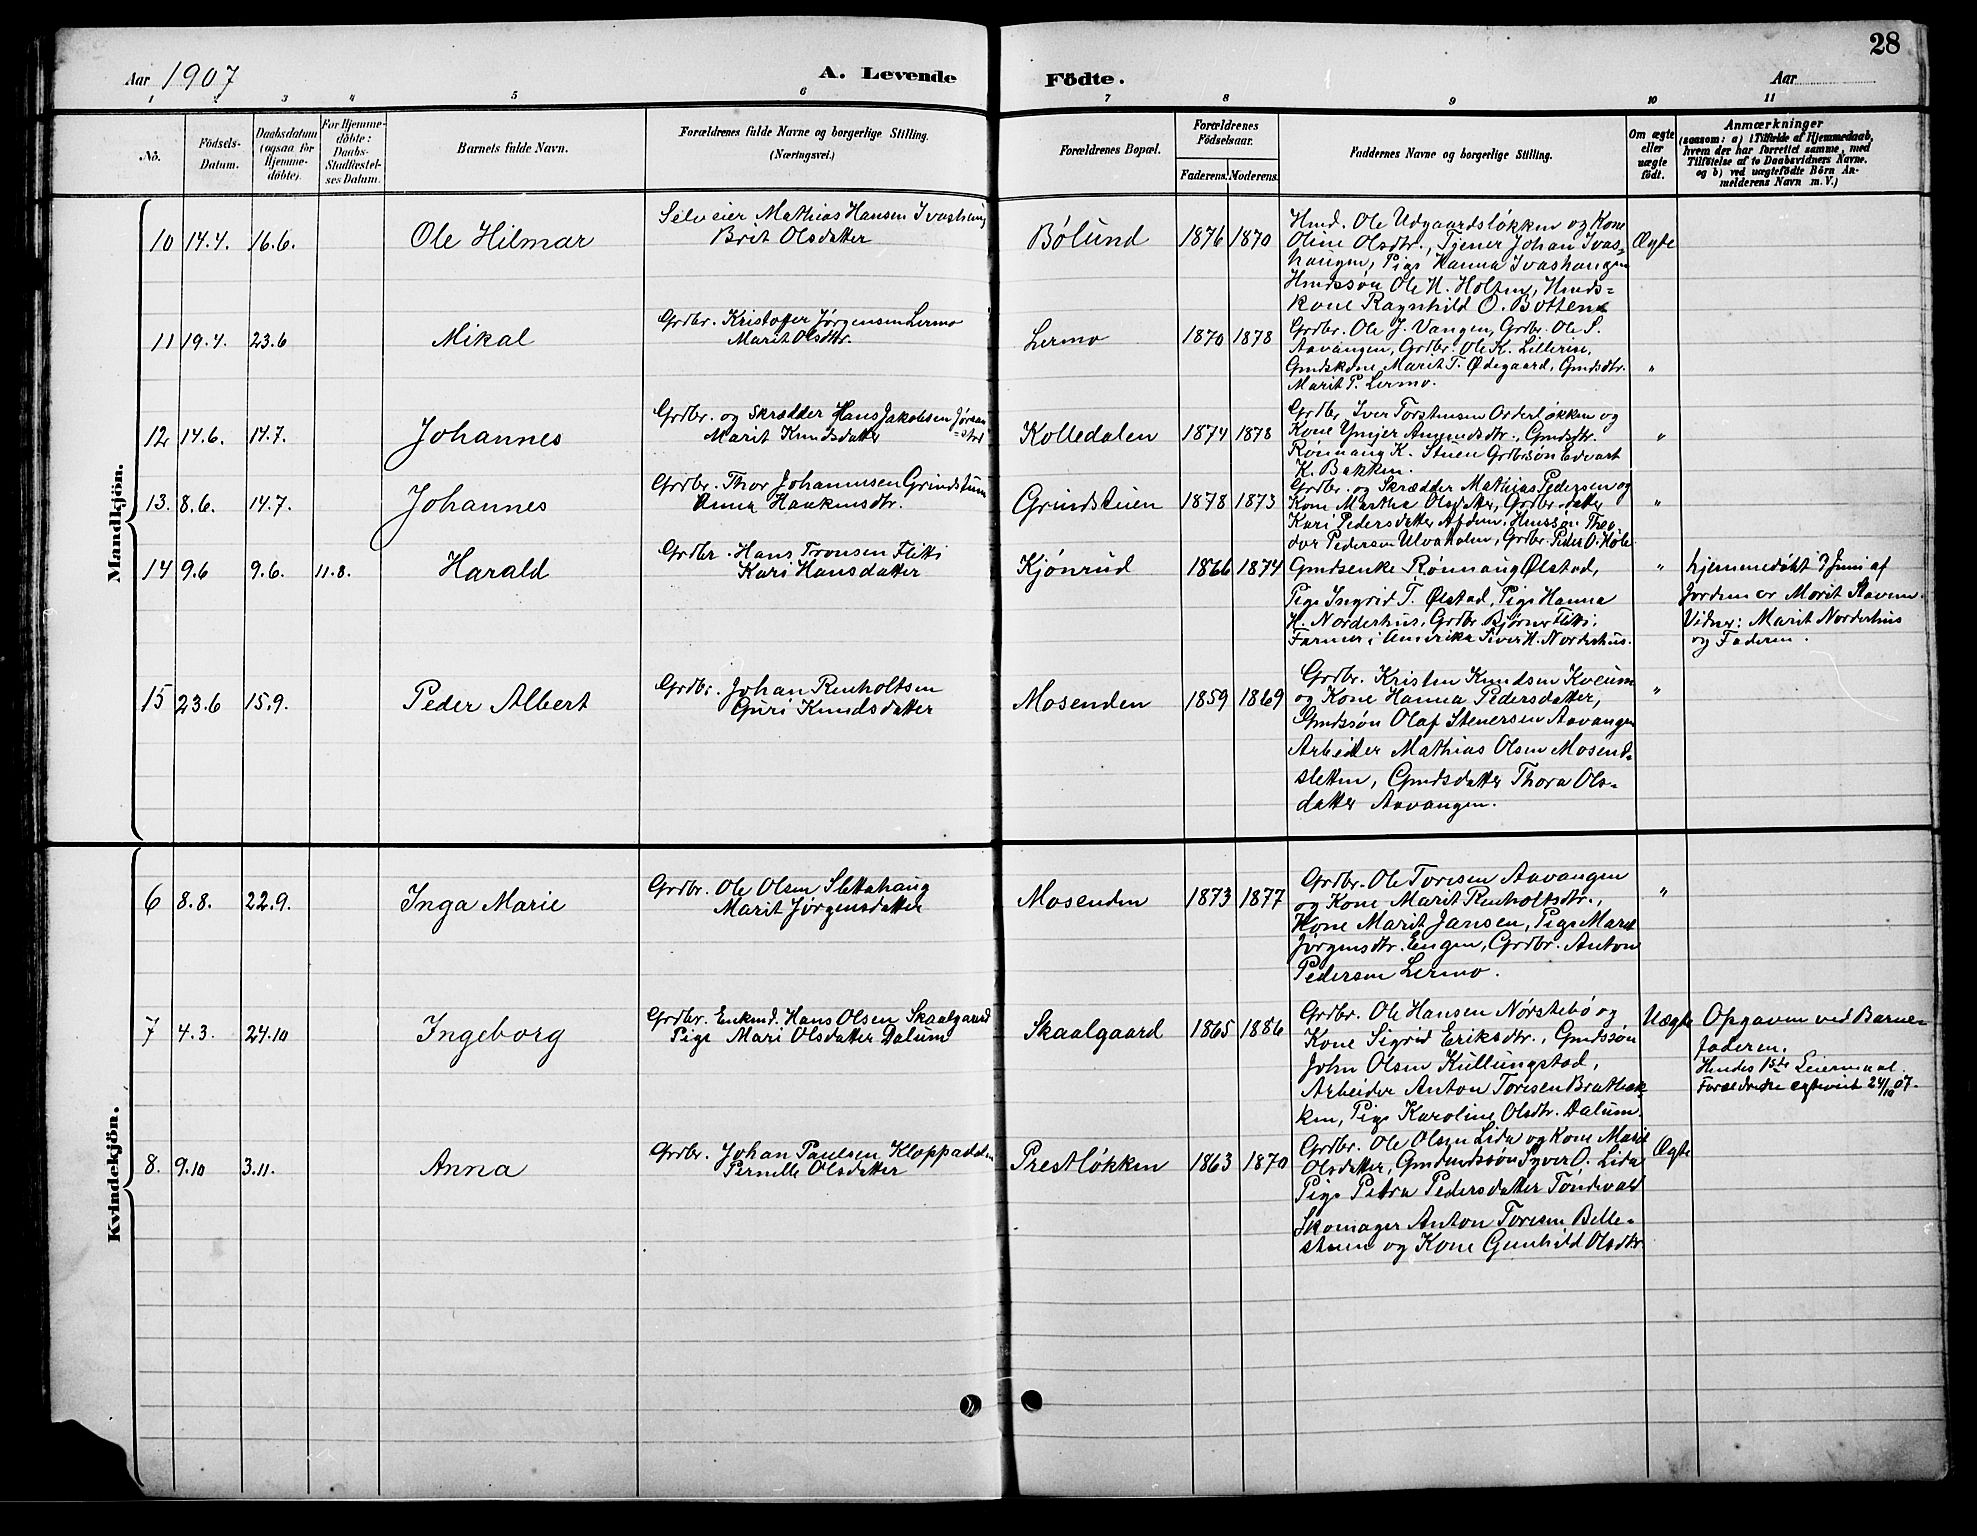 28
Aar 1907
A. Levende Födte.
Aar
1 2 3 4 5 6 7 8 9 10 11
No.
Födsels-Datum.
Daabsdatum (ogsaa for Hjemme-döbte).
For Hjemme-döbte: Daabs-Stadfæstel-ses Datum.
Barnets fulde Navn.
Forældrenes fulde Navne og borgerlige Stilling.
(Næringsvei.)
Forældrenes Bopæl.
Forældrenes Födselsaar.
Faderens. Moderens.
Faddernes Navne og borgerlige Stilling.
Om ægte eller uægte födt.
Anmærkninger
(saasom: a) i Tilfælde af Hjemmedaab,
hvem der har forrettet samme, med
Tilföielse af to Daabsvidners Navne.
og b) ved uægtefödte Börn An-
melderens Navn m. V.)
Mandkjön.
10 14.4. 16.6. Ole Hilmar
Selveier Mathias Hansen Ivashaug
Brit Olsdatter
Bölund 1876 1870
Hmd. Ole Udgaardsløkken og Kone
Oline Olsdtr., Tjener Johan Ivas-
haugen, Pige Hanna Ivashaugen
Hmdssøn Ole H. Holten, Hmds-
kone Ragnhild O. Botten
Ægte
11 19.4. 23.6 Mikal
Grdbr. Kristoffer Jørgensen Lermo
Marit Olsdtr.
Lermo 1870 1878
Grdbr. Ole J. Vangen, Grdbr. Ole S.
Aavangen, Grdbr. Ole K. Lillerise,
Gmdskone Marit T. Ødegaard, Gmdsdtr.
Marit P. Lermo.
"
12 14.6. 14.7. Johannes
Grdbr. og Skrædder Hans Jakobsen
Marit Knudsdatter
Kolledalen 1874 1878
Grdbr Iver Torstensen Orderløkken og
Kone Ymjer Amundsdtr., Gmdsdtr.
Rønnaug K. Stuen Grdbrsøn Edvart
K. Bakken.
"
13. 8.6. 14.7. Johannes
Grdbr. Thor Johannesen Grindstuen
Anna Haakensdtr.
Grindstuen 1878 1873
Grdbr. og Skrædder Mathias Pedersen og
Kone Martha Olsdatter, Grdbr.datter
Kari Pedersdatter Afdem, Hmssøn Theo
dor Pedersen Ulvaholen, Grdbr. Peder O. Hole
"
14 9.6 9.6. 11.8. Harald
Grdbr. Hans Tronsen Flitti
Kari Hansdatter
Kjönrud 1866 1874
Gmdsenke Rønnaug Ølstad,
Pige Ingrid T. Ølstad, Pige Hanna
H. Norderhus, Grdbr Bjørner Flitti,
Farmer i Amerika Siver H. Norderhus.
"
hjemmedøbt 9 Juni af
Jordemor Marit Stavem.
Vidner: Marit Norderhus
og Faderen.
15 23.6 15.9. Peder Albert
Grdbr. Johan Renholtsen
Guri Knudsdatter
Mosenden 1859 1869
Grdbr. Kristen Knudsen Kveum
og Kone Hanna Pedersdatter,
Gmdssøn Olaf Stenersen Aavangen
Arbeider Mathias Olsen Mosend-
sletten, Gmdsdatter Thora Ols-
datter Aavangen.
"
Kvindekjön.
6 8.8. 22.9. Inga Marie
Grdbr. Ole Olsen Slettahaug
Marit Jørgensdatter
Mosenden 1873 1877
Grdbr. Ole Toresen Aavangen
og Kone Marit Renholtsdtr.,
Kone Marit Jansen, Pige Marit
Jørgensdtr. Engen, Grdbr. Anton
Pedersen Lermo.
"
7 4.3. 24.10 Ingeborg
Grdbr. Enkmd. Hans Olsen Skaalgaard
Pige Mari Olsdatter Dalum
Skaalgaard 1865 1886
Grdbr. Ole Hansen Nørstebö og
Kone Sigrid Eriksdtr., Gmdssøn
John Olsen Kullungstad,
Arbeider Anton Toresen Brattbak
ken, Pige Karoline Olsdtr. Dalum.
Uægte
Opgaven ved Barne-
faderen.
Hendes 1ste Leiermaal.
Forældrene egteviet 24/10 07.
8. 9.10 3.11. Anna
Grdbr. Johan Paulsen Kloppadden
Pernille Olsdatter
Prestløkken 1863 1870
Grdbr. Ole Olsen Lida og Kone Marit
Olsdatter, Syver O. Lida
Pige Petra Pedersdatter Tøndevald
Skomager Anton Toresen Belle-
stuen og Kone Gunhild Olsdtr.
Ægte